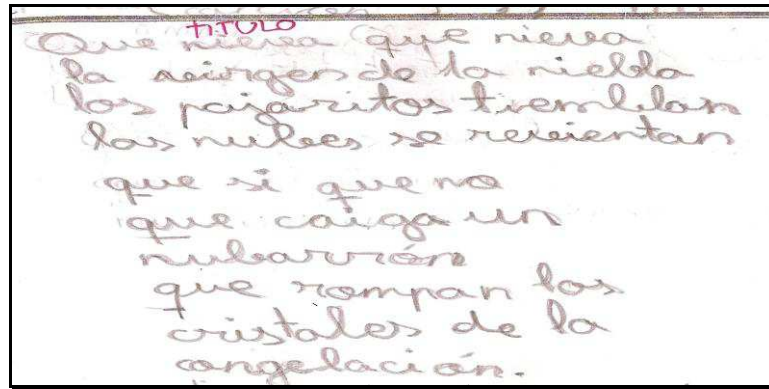 TITULO
Que nieva que nieva
la virgen de la nielda
los pajaritos tiemblan
las nubes se revientan
que si que no
que caiga un
nubarrón
que rompan los
cristales de la
congelación.